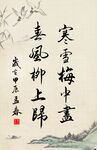 寒雪梅中盡
春風柳上歸
歲在甲辰孟春